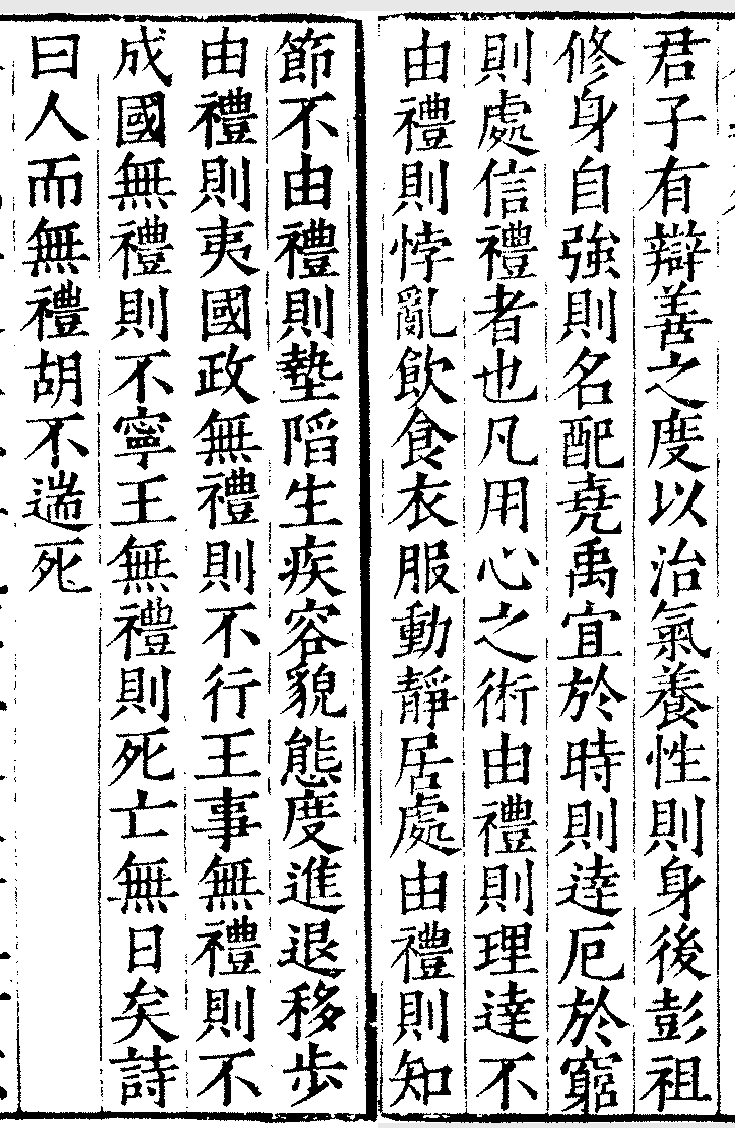 君子有辯善之度以治氣養性則身後彭祖
修身自強則名配堯禹宜於時則達厄於窮
則處信禮者也凡用心之術由禮則理達不
由禮則悖亂飲食衣服動靜居處由禮則知
節不由禮則墊陷生疾容貌態度進退移步
由禮則夷國政無禮則不行王事無禮則不
成國無禮則不寧王無禮則死亡無日矣詩
曰人而無禮胡不遄死